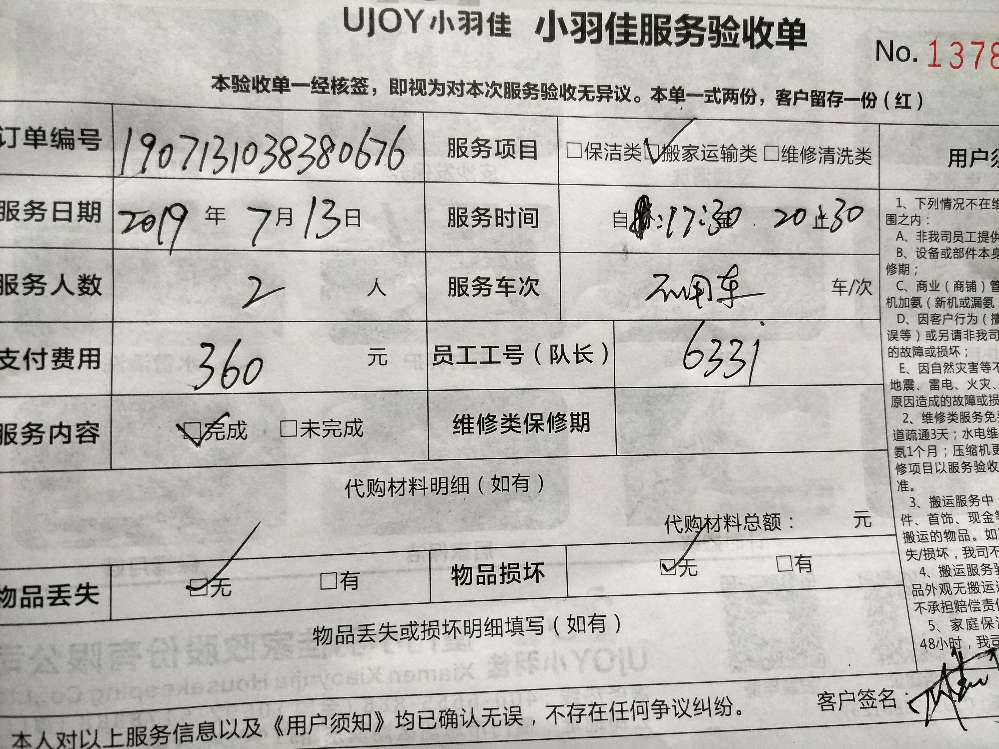 UJOY小羽佳 小羽佳服务验收单
No. 1378
本验收单一经核签，即视为对本次服务验收无异议。本单一式两份，客户留存一份（红）
订单编号 1907131038380676 服务项目 □保洁类 ☑搬家运输类 □维修清洗类
服务日期 2019 年 7月 13日 服务时间 自 17:30 20止30
服务人数 2 人 服务车次 不用车 车/次
支付费用 360 元 员工工号（队长） 6331
服务内容 ☑完成 □未完成 维修类保修期
代购材料明细（如有）
代购材料总额： 元
物品丢失 ☑无 □有 物品损坏 ☑无 □有
物品丢失或损坏明细填写（如有）
本人对以上服务信息以及《用户须知》均已确认无误，不存在任何争议纠纷。
客户签名：
用户须
1、下列情况不在维
围之内：
A、非我司员工提供
B、设备或部件本身
修期；
C、商业（商铺）管
机加氨（新机或漏氨
D、因客户行为（撞
误等）或另请非我司
的故障或损坏；
E、因自然灾害等不
地震、雷电、火灾、
原因造成的故障或损
2、维修类服务免
道疏通3天；水电维
氨1个月；压缩机更
修项目以服务验收
准。
3、搬运服务中
件、首饰、现金等
搬运的物品。如
失/损坏，我司不
4、搬运服务验
品外观无搬运
不承担赔偿责任
5、家庭保洁
48小时，我司